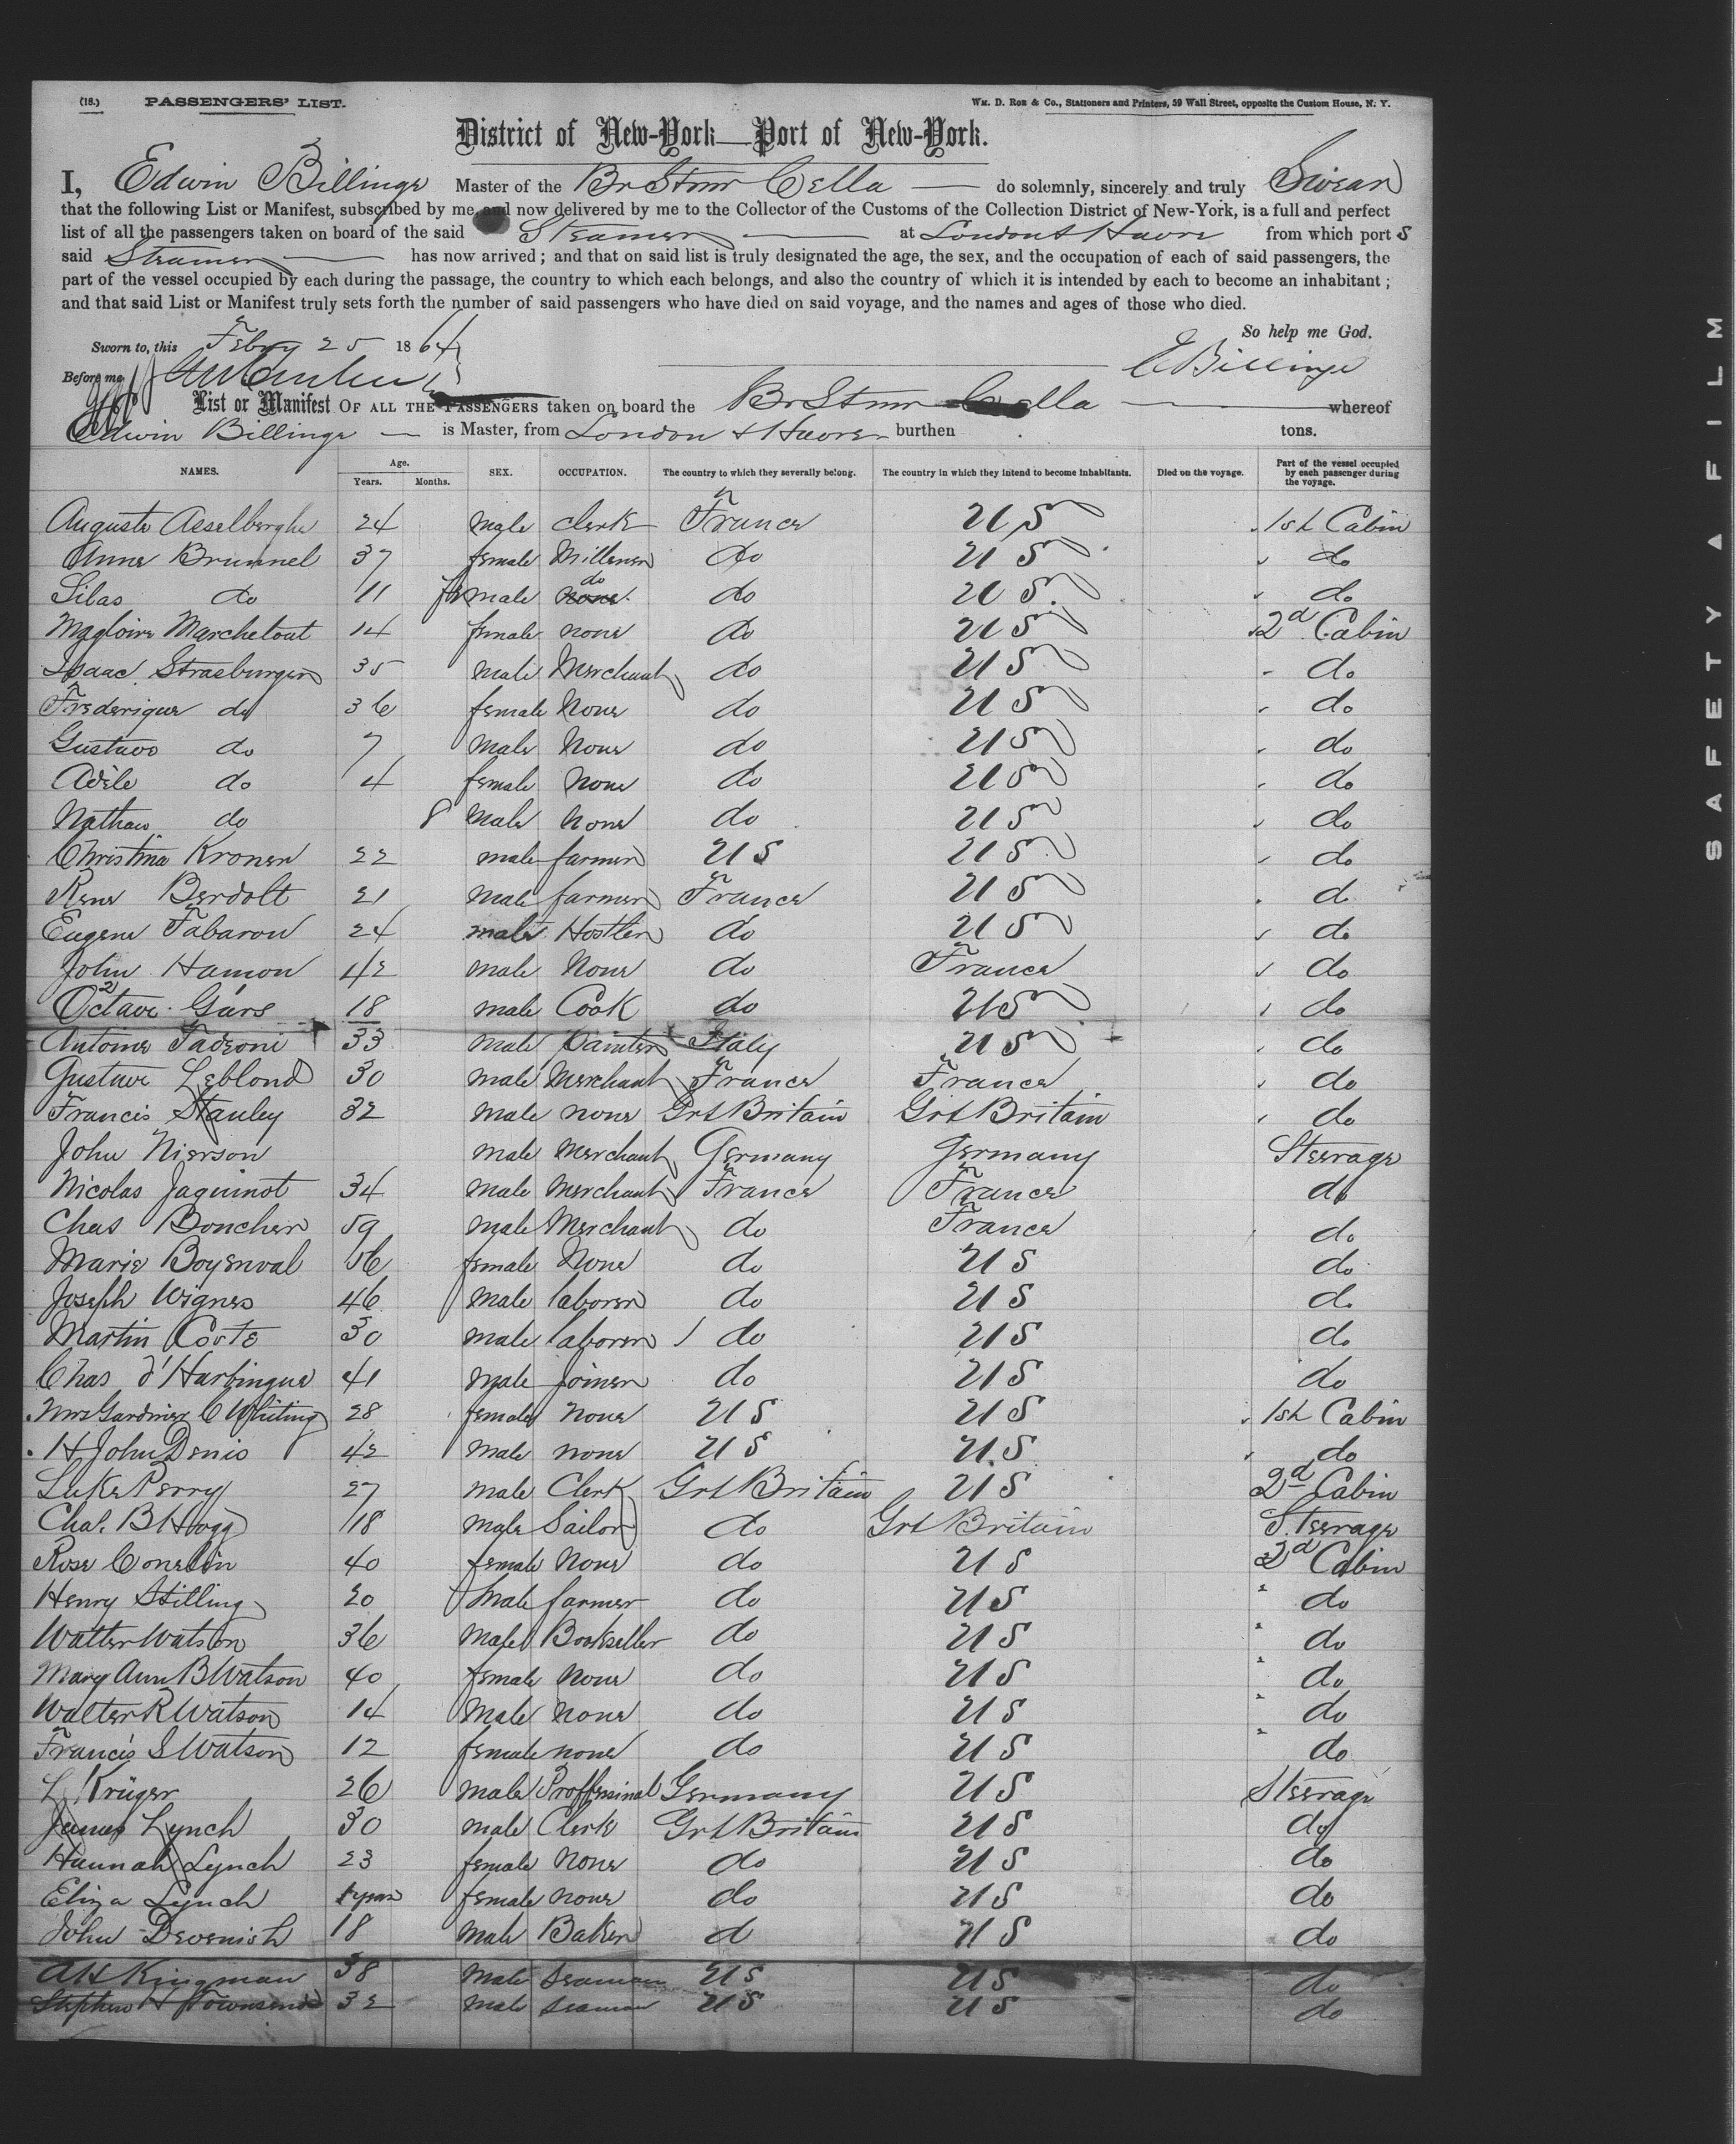 (18.) PASSENGERS' LIST. Wm. D. Roe & Co., Stationers and Printers, 59 Wall Street, opposite the Custom House, N. Y.
District of New-York—Port of New-York.
I, Edwin Billinge Master of the Br Stmr Cella do solemnly, sincerely and truly Swear
that the following List or Manifest, subscribed by me and now delivered by me to the Collector of the Customs of the Collection District of New-York, is a full and perfect
list of all the passengers taken on board of the said Steamer at London & Havre from which port s
said Steamer has now arrived; and that on said list is truly designated the age, the sex, and the occupation of each of said passengers, the
part of the vessel occupied by each during the passage, the country to which each belongs, and also the country of which it is intended by each to become an inhabitant;
and that said List or Manifest truly sets forth the number of said passengers who have died on said voyage, and the names and ages of those who died.
So help me God.
Sworn to, this Febry 25 1864
E Billinge
Before me
List or Manifest OF ALL THE PASSENGERS taken on board the Br Stmr Cella whereof
Edwin Billinge is Master, from London & Havre burthen tons.
NAMES. Age. Years. Months. SEX. OCCUPATION. The country to which they severally belong. The country in which they intend to become inhabitants. Died on the voyage. Part of the vessel occupied by each passenger during the voyage.
Auguste Asselberghe 24 male clerk France U S 1st Cabin
Anne Brunnel 37 female Milliner do U S do
Silas do 11 female do do U S do
Magloire Marchetout 14 female none do U S 2d Cabin
Isaac Strasburger 35 male Merchant do U S do
Frederique do 36 female None do U S do
Gustave do 7 male None do U S do
Adèle do 4 female None do U S do
Nathan do 8 male None do U S do
Christina Kroner 22 male farmer U S U S do
Rene Berdolt 21 male farmer France U S d
Eugene Tabarou 24 male Hostler do U S do
John Hamon 42 male None do France do
Octave Gars 18 male Cook do U S do
Antome Tadeoni 33 male painter Italy U S do
Gustave Leblond 30 male Merchant France France do
Francis Stanley 32 male none Grt Britain Grt Britain do
John Nierson male Merchant Germany Germany Steerage
Nicolas Jaquinot 34 male Merchant France France do
Chas Boucher 59 male Merchant do France do
Marie Boyenval 56 female None do U S do
Joseph Wignes 46 male laborer do U S do
Martin Coste 30 male laborer do U S do
Chas d'Harbingue 41 male joiner do U S do
Mrs Gardiner C Whiting 28 female none U S U S 1st Cabin
H John Denis 42 male none U S U S do
Luke Perry 27 male Clerk Grt Britain U S 2d Cabin
Chas. B Hogg 18 male Sailor do Grt Britain Steerage
Rose Conelin 40 female None do U S 2d Cabin
Henry Stilling 20 male farmer do U S do
Walter Watson 36 male Bookseller do U S do
Mary Ann B Watson 40 female none do U S do
Walter R Watson 14 male none do U S do
Francis S Watson 12 female none do U S do
L Krüger 26 male Proffesinal Germany U S Steerage
James Lynch 30 male Clerk Grt Britain U S do
Hannah Lynch 23 female None do U S do
Eliza Lynch 1 year female none do U S do
John Devenish 18 male Baker d U S do
A H Kingman 38 male seaman U S U S do
Stephen H Townsend 32 male seaman U S U S do
SAFETY A FILM